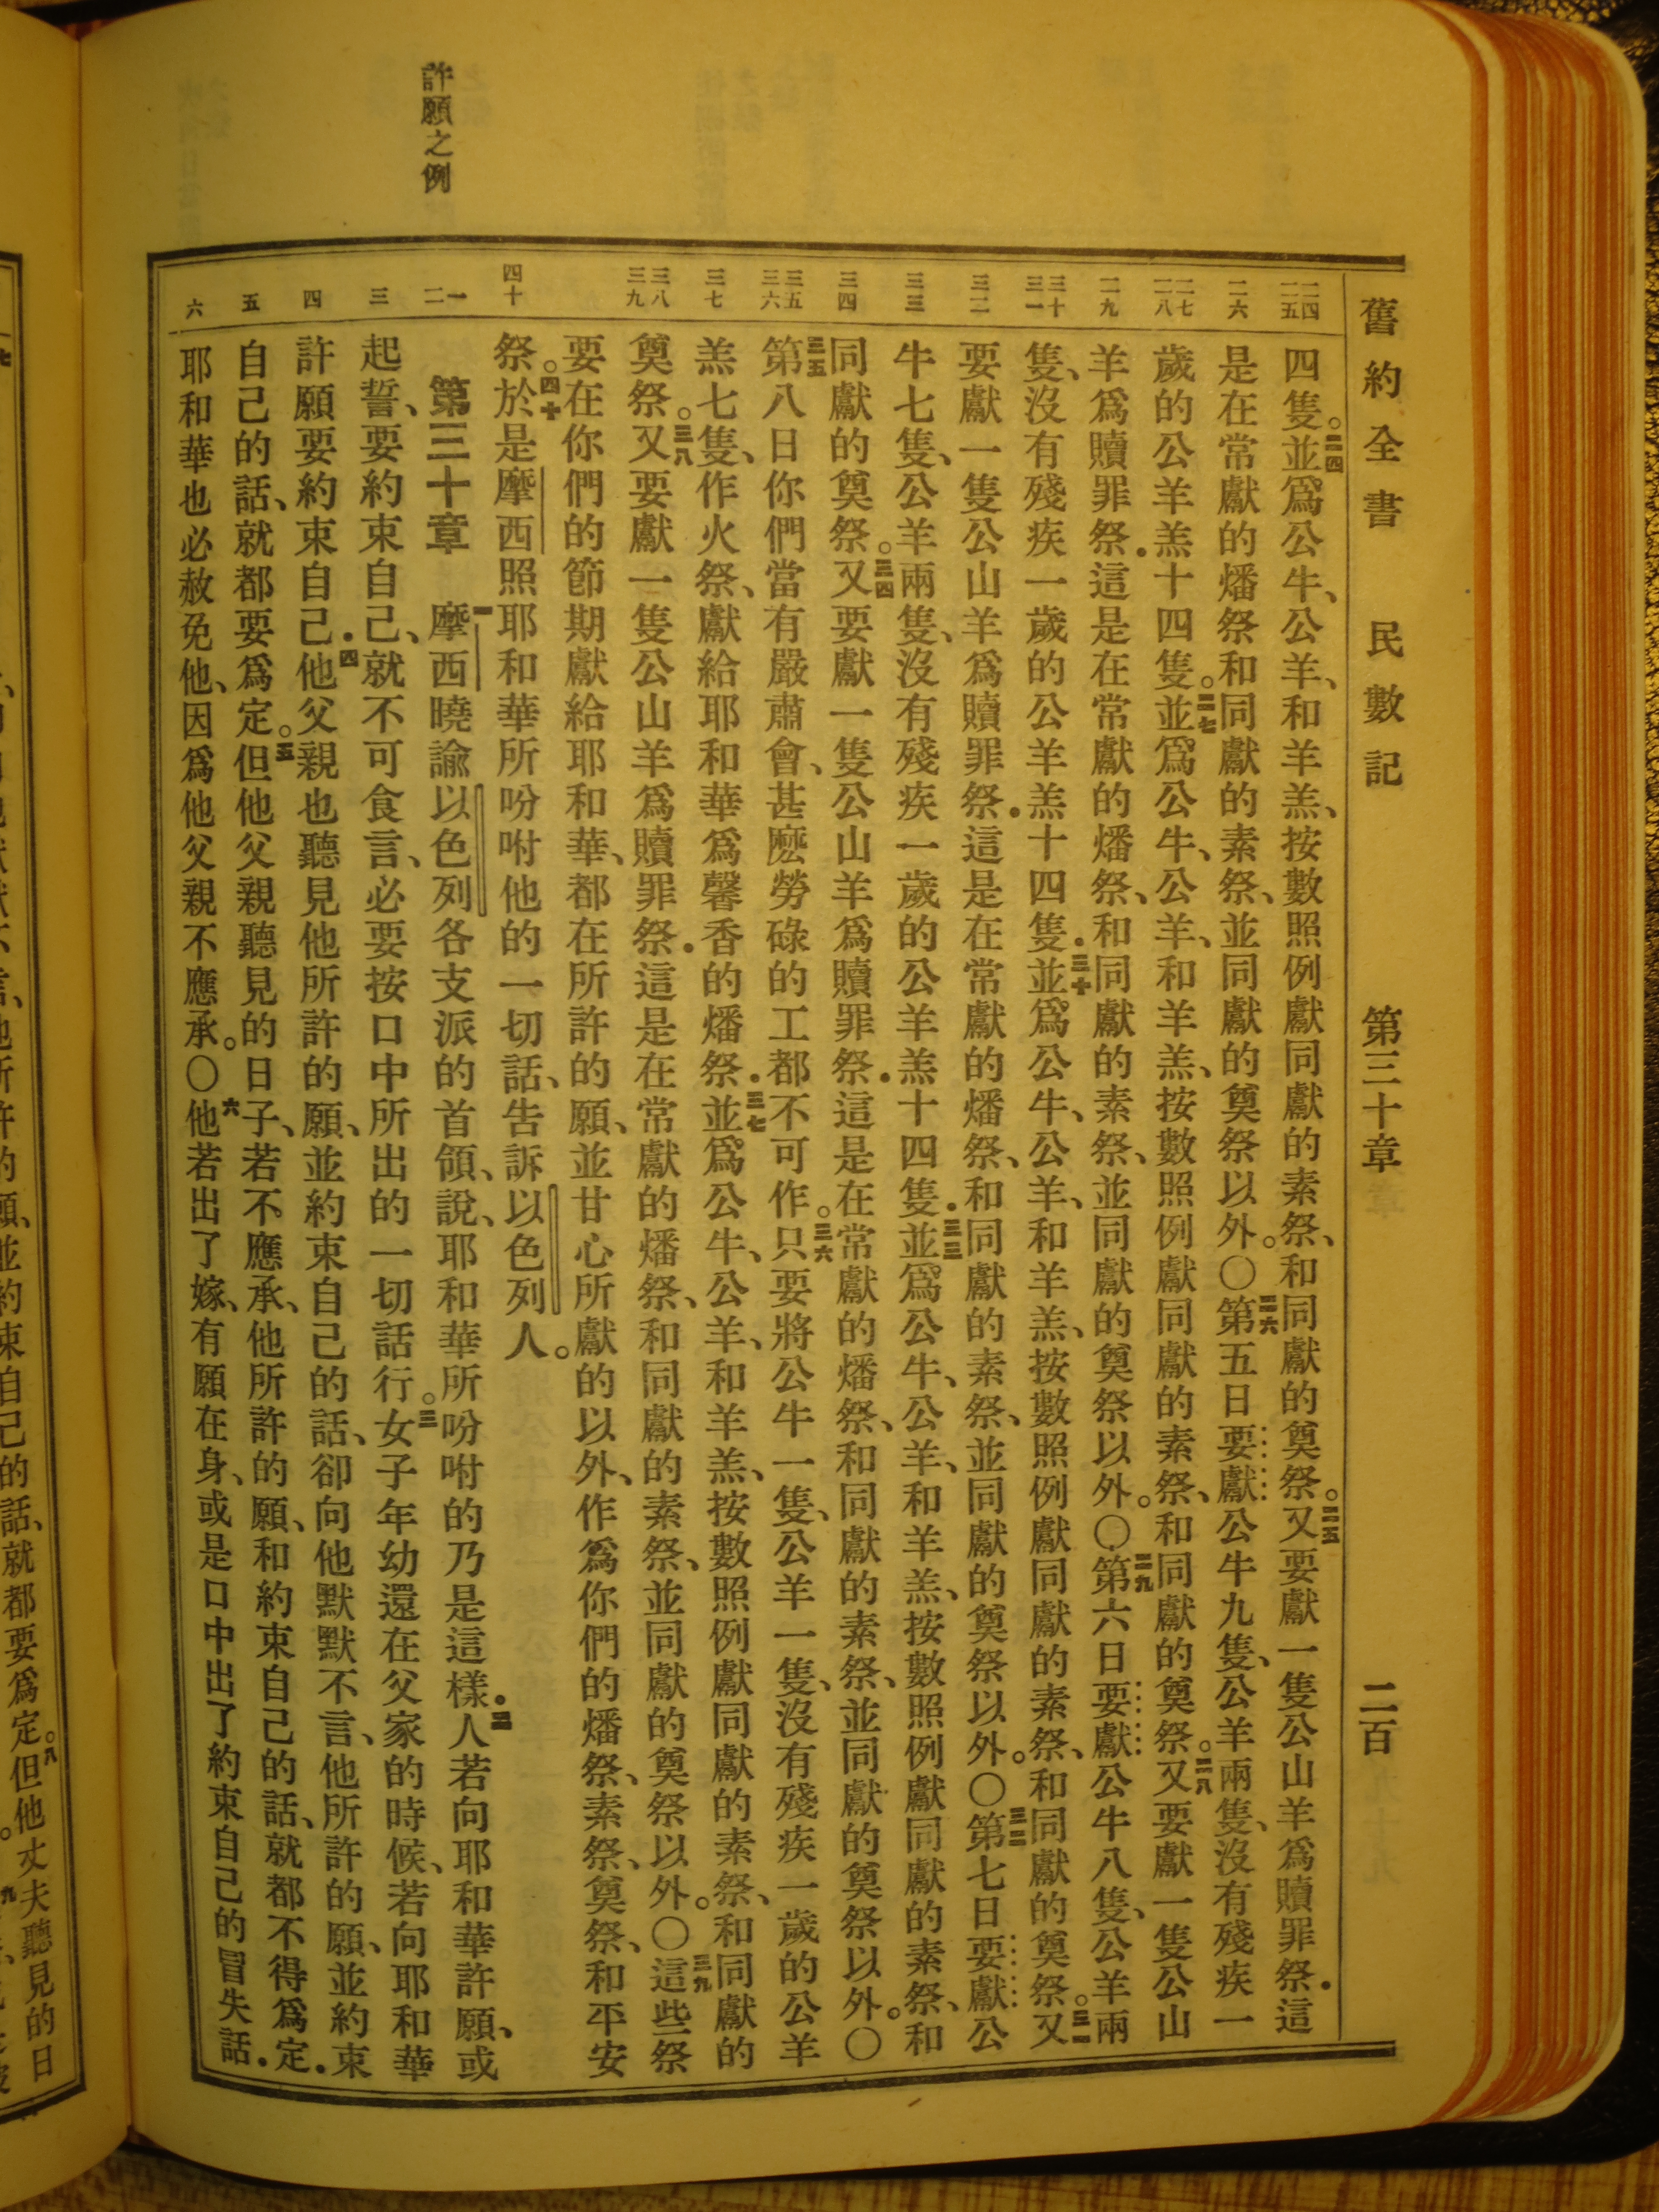 舊約全書 民數記 第三十章 二百
二四 二五 二六 二七 二八 二九 三十 三一 三二 三三 三四 三五 三六 三七 三八 三九 四十 一 二 三 四 五 六
許願之例
四隻。二四並爲公牛、公羊、和羊羔、按數照例獻同獻的素祭、和同獻的奠祭。二五又要獻一隻公山羊爲贖罪祭．這
是在常獻的燔祭和同獻的素祭、並同獻的奠祭以外。〇二六第五日要獻公牛九隻、公羊兩隻、沒有殘疾一
歲的公羊羔十四隻。二七並爲公牛、公羊、和羊羔、按數照例獻同獻的素祭、和同獻的奠祭。二八又要獻一隻公山
羊爲贖罪祭．這是在常獻的燔祭、和同獻的素祭、並同獻的奠祭以外。〇二九第六日要獻公牛八隻、公羊兩
隻、沒有殘疾一歲的公羊羔十四隻．三十並爲公牛、公羊、和羊羔、按數照例獻同獻的素祭、和同獻的奠祭。三一又
要獻一隻公山羊爲贖罪祭．這是在常獻的燔祭、和同獻的素祭、並同獻的奠祭以外。〇三二第七日要獻公
牛七隻、公羊兩隻、沒有殘疾一歲的公羊羔十四隻．三三並爲公牛、公羊、和羊羔、按數照例獻同獻的素祭、和
同獻的奠祭。三四又要獻一隻公山羊爲贖罪祭．這是在常獻的燔祭、和同獻的素祭、並同獻的奠祭以外。〇
三五第八日你們當有嚴肅會、甚麽勞碌的工都不可作。三六只要將公牛一隻、公羊一隻、沒有殘疾一歲的公羊
羔七隻、作火祭、獻給耶和華爲馨香的燔祭．三七並爲公牛、公羊、和羊羔、按數照例獻同獻的素祭、和同獻的
奠祭。三八又要獻一隻公山羊爲贖罪祭．這是在常獻的燔祭、和同獻的素祭、並同獻的奠祭以外。〇三九這些祭
要在你們的節期獻給耶和華、都在所許的願、並甘心所獻的以外、作爲你們的燔祭、素祭、奠祭、和平安
祭。四十於是摩西照耶和華所吩咐他的一切話、告訴以色列人。
第三十章 一摩西曉諭以色列各支派的首領、說、耶和華所吩咐的乃是這樣．二人若向耶和華許願、或
起誓、要約束自己、就不可食言、必要按口中所出的一切話行。三女子年幼還在父家的時候、若向耶和華
許願要約束自己．四他父親也聽見他所許的願、並約束自己的話、卻向他默默不言、他所許的願、並約束
自己的話、就都要爲定。五但他父親聽見的日子、若不應承、他所許的願、和約束自己的話、就都不得爲定．
耶和華也必赦免他、因爲他父親不應承。〇六他若出了嫁、有願在身、或是口中出了約束自己的冒失話．
所許的願、並約束自己的話、就都要爲定。八但他丈夫聽見的日